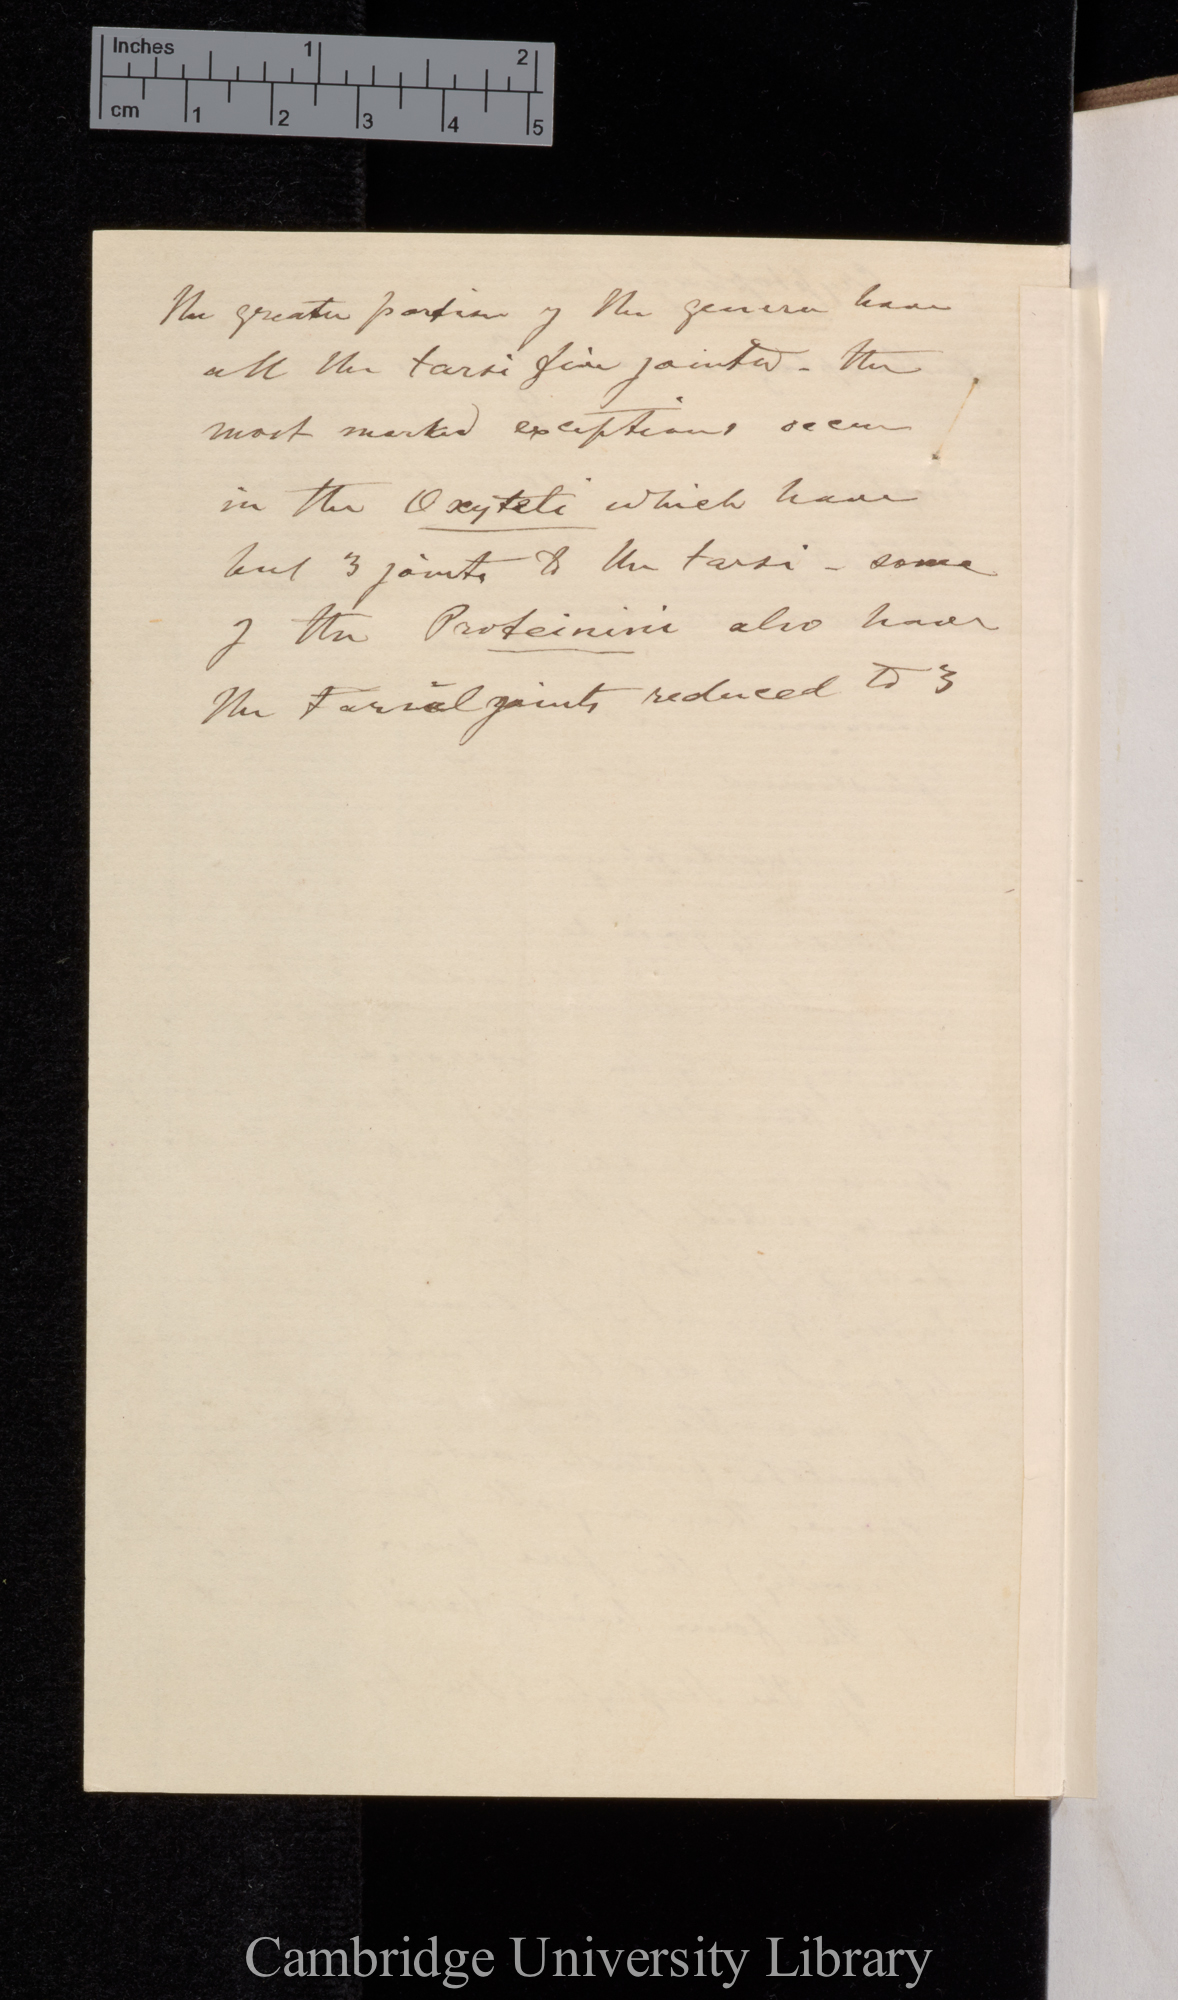 Inches 1 2
cm 1 2 3 4 5
The greater portion of the genera have
all the tarsi five jointed - the
most marked exceptions occur
in the Oxyteli which have
but 3 joints to the tarsi - some
of the Proteinini also have
the tarsal joints reduced to 3
Cambridge University Library